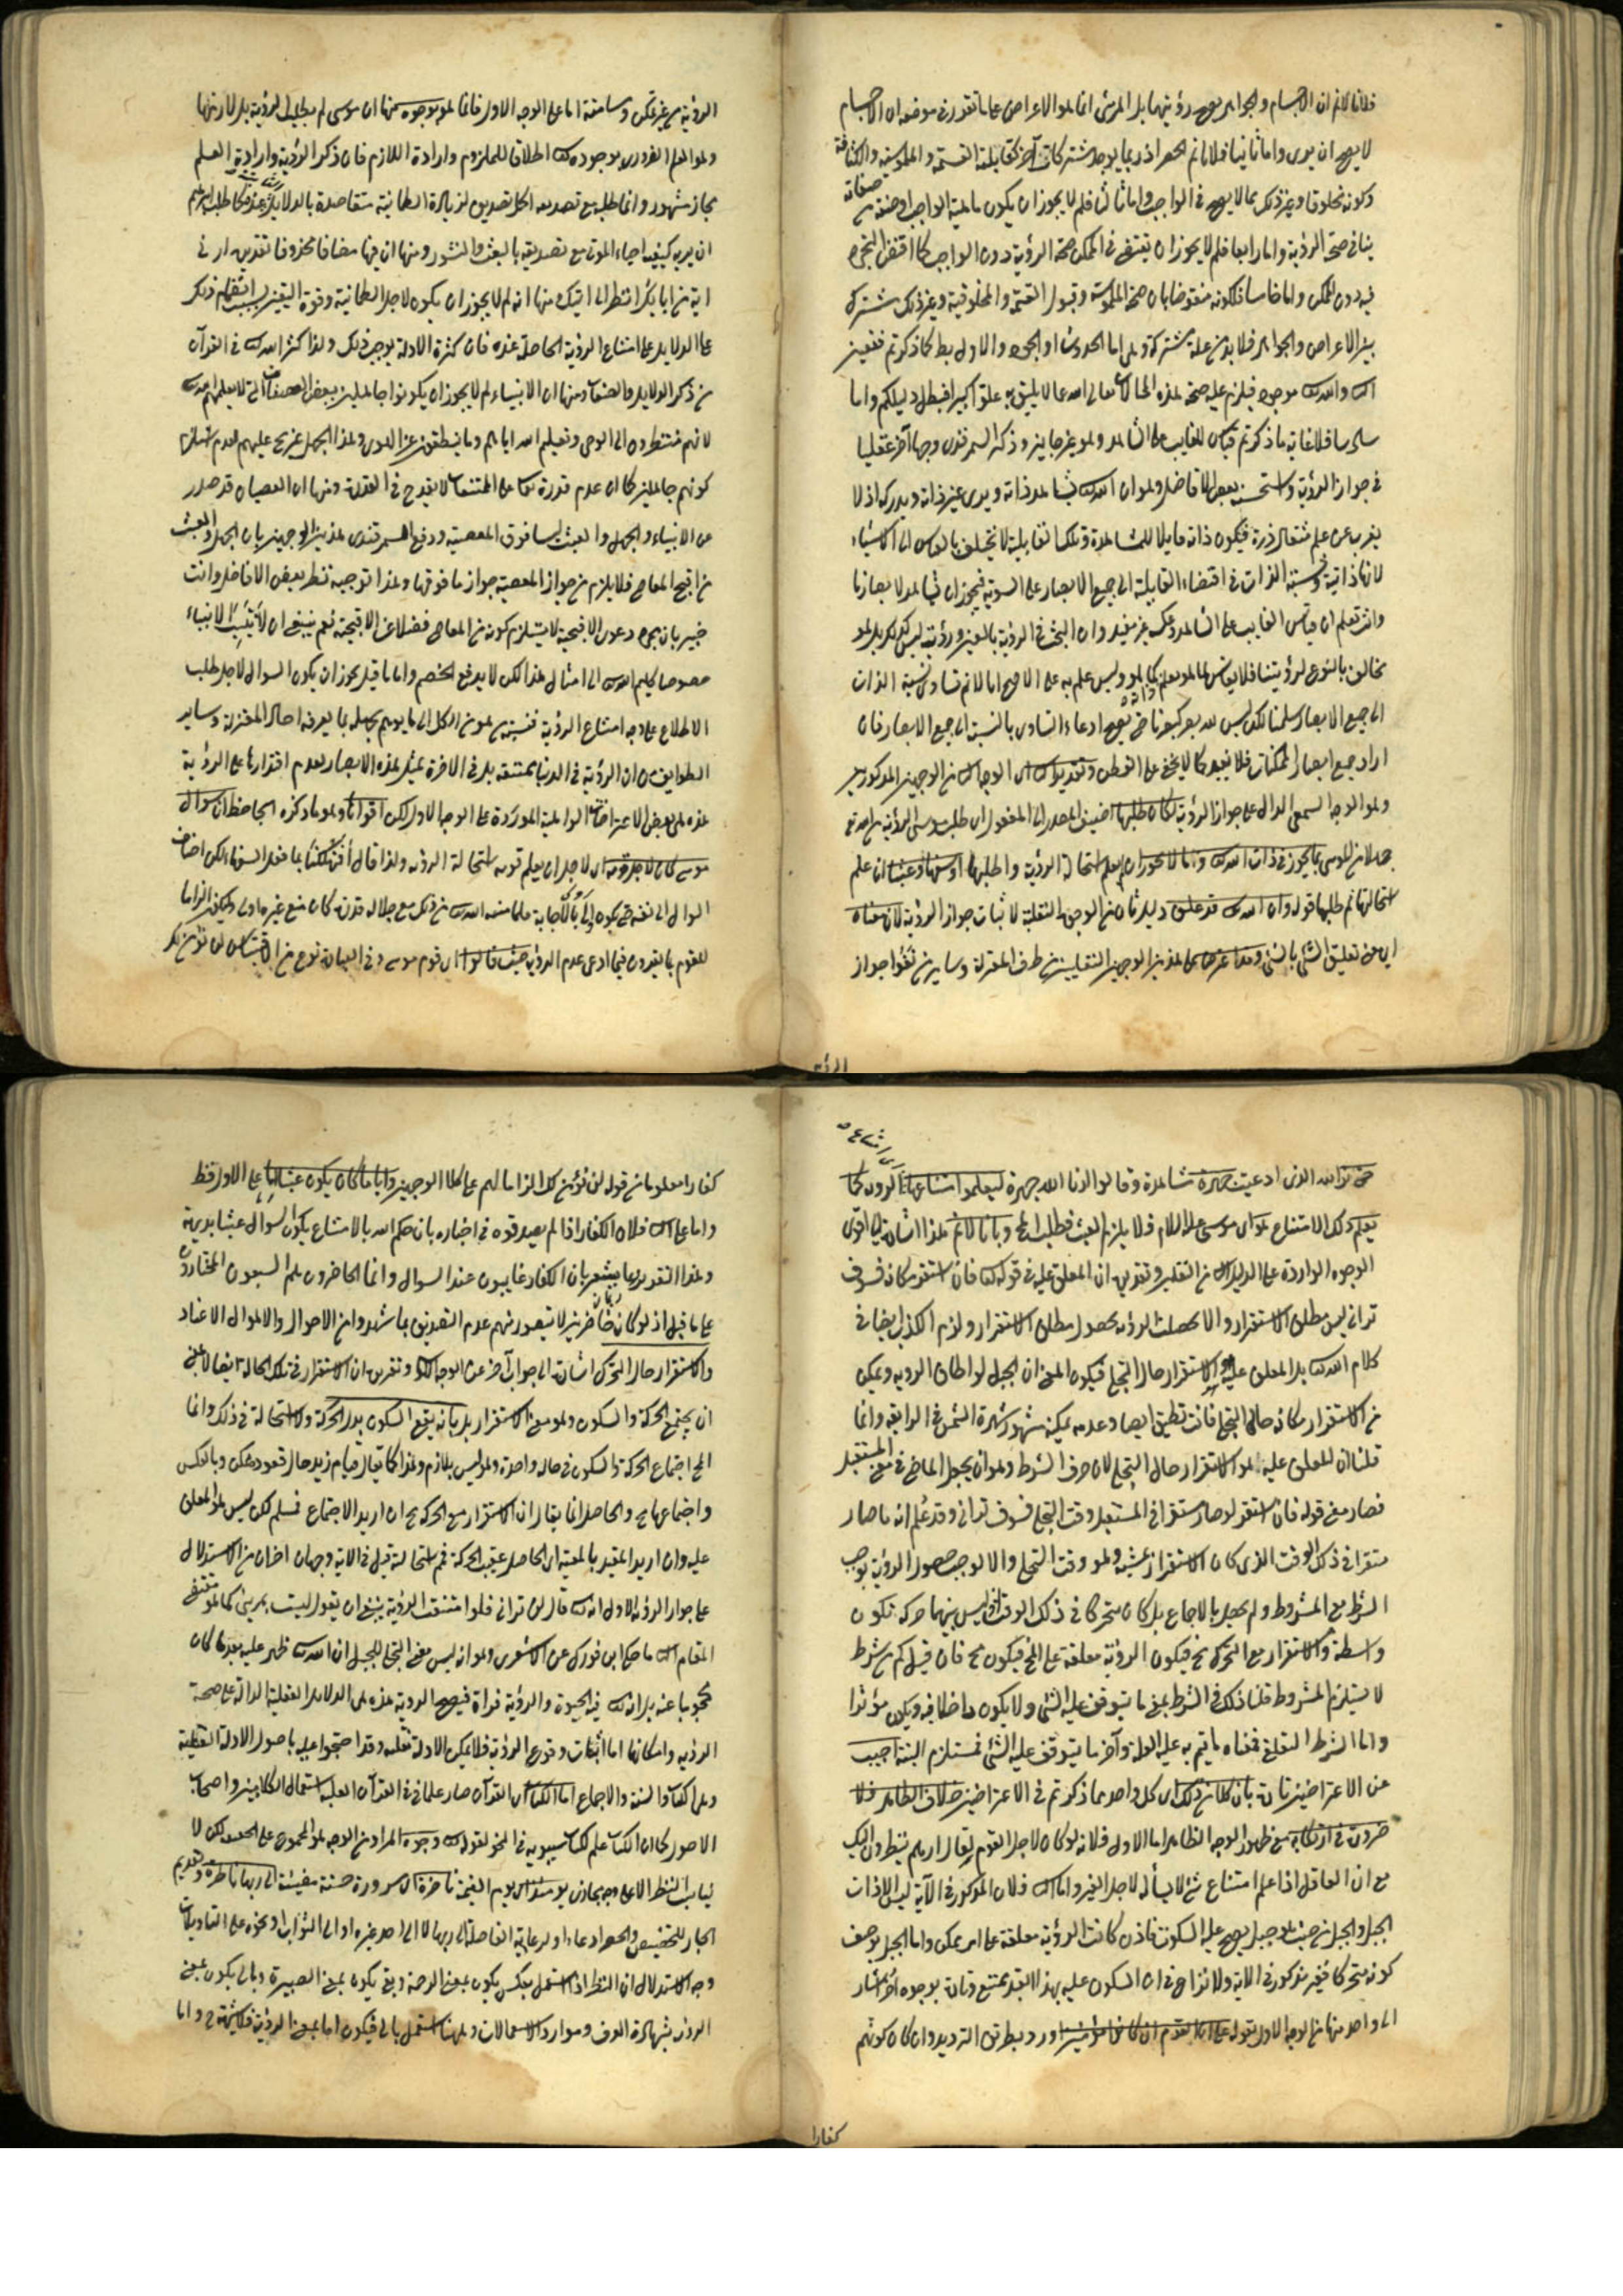 فلانا لا نم ان الاجسام والجواهر يصح رؤيتها بل المرئى انما هو الاعراض على ما تقرر فى موضعه ان الاجسام
لا يصح ان يرى واما ثانيا فلانا نم الحصر اذ ربما يوجد مشترك آخر كقابلية القسمة و الملموسية والكثافة
وكونه مخلوقا وغير ذلك مما لا يصح فى الواجب واما ثالثا فلم لا يجوز ان يكون ماهية الواجب او صفة من صفاته
ينافى صحة الرؤية واما رابعا فلم لا يجوز ان تقتضى فى الممكن صحة الرؤية دون الواجب كما اقتضى التحيز
فيه دون الممكن واما خامسا فلكونه منقوضا بان صحة الملموسية وقبول القسمة والمخلوقية وغير ذلك مشترك
بين الاعراض والجواهر فلا بد من علة مشتركة وهى اما الحدوث او الوجود والاول بط كما ذكرتم فتعين
الثانى والله تعالى موجود فيلزم عليه صحة هذه الحالات تعالى الله عما لا يليق به علوا كبيرا فبطل دليلكم واما
سادسا فلان غاية ما ذكرتم قياس الغايب على الشاهد وهو غير جايز وذكر السمرقندى وجها آخر عقليا
فى جواز الرؤية واستحسنه بعض الافاضل وهو ان الله تعالى يشاهد ذاته ويرى عين ذاته ويدركه اذ لا
يغرب عن علمه مثقال ذرة فيكون ذاته قابلا للمشاهدة وتلك القابلية لا تختلف بالقياس الى الاشياء
لانها ذاتية ونسبة الذات فى اقتضاء القابلية الى جميع الابصار على السوية فيجوز ان يشاهد لابصارنا
وانت تعلم ان قياس الغايب على الشاهد غير مفيد وان البحث فى الرؤية بالعين ورؤيته ليس كذلك بل هو
مخالف بالنوع لرؤيتنا فلا يقاس
الى جميع الابصار سلمنا لكن ليس لله بصر كبصرنا حتى يصح ادعاء التساوى بالنسبة الى جميع الابصار فان
اراد جميع ابصار الممكنات فلا يفيد كما لا يخفى على الفطن وتقرير الثانى اى الوجه الثانى من الوجهين المذكورين
وهو الوجه السمعى الدال على جواز الرؤية لكان طلبها اضيف المصدر الى المفعول اى طلب موسى الرؤية من الله تع
جهلا من موسى بما يجوز فى ذات الله تعالى وما لا يجوز ان لم يعلم استحالة الرؤية وطلبها او سفها وعبثا ان علم
استحالتها ثم طلبها قوله وان الله تعالى قد علق دليل ثان من الوجوه النقلية لاثبات جواز الرؤية لان معناه
اى معنى تعليق الشئ بالشئ وقد اعترض على هذين الوجهين النقليين من طرف المعتزلة وساير من نفوا جواز
الرؤ
الرؤية من غير تمكن وسامعة اما على الوجه الاول فانما هو بوجوه منها ان موسى لم يطلب الرؤية بل لازمها
وهو العلم الضرورى بوجوده تعالى اطلاقا للملزوم وارادة اللازم فان ذكر الرؤية وارادة العلم
مجاز مشهور وانما طلبه مع تصديقه لزيادة الطمانية متقاصدة بالدلايل كما طلب ابراهيم
ان يريه كيفية احياء الموتى مع تصديقه بالبعث والنشور ومنها ان فيها مضافا محذوفا تقديره ارنى
اية من اياتك انظر الى ايتك منها انه لم لا يجوز ان يكون لاجل الطمانية وقوة اليقين بسبب انضمام ذلك
على الدلايل على امتناع الرؤية الحاصلة عنده فان كثرة الادلة يوجب ذلك ولذا كثر الله تعالى فى القرآن
من ذكر الدلايل والصفات ومنها ان الانبياء لم لا يجوز ان يكونوا جاهلين ببعض الصفات التى لا يعلمهم الله تعالى
لانهم منتظرون الى الوحى وتعليم الله اياهم وما ينطقون عن الهوى وهذا الجهل غير مخ عليهم لعدم استلزام
كونهم جاهلين كما ان عدم قدرة تعا على الممتنعات لا يقدح فى القدرة ومنها ان العصيان قد صدر
عن الانبياء والجهل والعبث ليسا فوق المعصية ودفع السمرقندى هذين الوجهين بان الجهل والعبث
من اقبح المعاصى فلا يلزم من جواز المعصية جواز ما فوقها وهذا توجيه نظر بعض الافاضل وانت
خبير بان مجرد دعوى الاقبحية لا يستلزم كونه من المعاصى فضلا عن الاقبحية نعم ينبغى ان لا ينسب الانبياء
خصوصا كليم الله تعالى الى امثال هذا لكن لا يدفع الخصم واما ما قيل يجوز ان يكون السؤال لاجل طلب
الاطلاع على وجه امتناع الرؤية فنسبة من هو من الكل الى ما يوهم بجهله بما يعرفه احاد المعتزلة وساير
الطوايف من ان الرؤية فى الدنيا ممتنعة بل فى الاخرة بمثل هذه الابصار لعدم اقتدارها على الرؤية
هذه هى بعض الاعتراضات الواهية الموردة على الوجه الاول لكن اقواها وهو ما ذكره الجاحظ ان سؤال
موسى كان لاجل قومه اى لاجل ان يعلم قومه استحالة الرؤية ولذا قال أفتهلكنا بما فعل السفهاء لكن اضاف
السؤال الى نفسه حتى يكون اولى بالاجابة فلما منعه الله تعالى من ذلك مع جلالة قدره كان منع غيره اولى وليكون الزاما
للقوم بما يقررون فيما ادعى عدم الرؤية حيث قالوا اى قوم موسى وفى العبارة نوع من اقتباس لن نؤمن لك
حتى نرى الله الذى ادعيت جهرة مشاهدة وقالوا ارنا الله جهرة ليعلموا امتناعها اى امتناع الرؤية كما
يعلم ذلك الامتناع هو اى موسى عليه السلام فلا يلزم العبث فطلب المح وبانا لا نم هذا اشارة الى اقوى
الوجوه الواردة على الدليل الثانى من النقلين وتقريره ان المعلق عليه فى قوله تعا فان استقر مكانه فسوف
ترانى ليس مطلق الاستقرار والا لحصلت الرؤية بحصول مطلق الاستقرار ولزم الكذب ايضا فى
كلام الله تعالى بل المعلق عليه هو الاستقرار حال التجلى فيكون المعنى ان الجبل لو اطاق الرؤية ويمكن
من الاستقرار مكانه حال التجلى فانت تطيق ايضا وعدمه يمكنه مشهور شهرة الشمس فى الرابعة وانما
قلنا ان المعلق عليه هو الاستقرار حال التجلى لان حرف الشرط وهو ان يجعل الماضى فى معنى المستقبل
فصار معنى قوله فان استقر لو صار مستقرا فى المستقبل وقت التجلى فسوف ترانى وقد علم انه ما صار
مستقرا فى ذلك الوقت الذى كان الاستقرار وهو وقت التجلى والا لوجب حصول الرؤية لوجوب
الشرط مع المشروط ولم يحصل بالاجماع بل كان متحركا فى ذلك الوقت اذ ليس بينهما حركة تكون
واسطة والاستقرار مع التحرك مح فيكون الرؤية معلقة على المح فيكون مح فان قيل كم من شرط
لا يستلزم المشروط قلنا ذلك فى الشرط بمعنى ما يتوقف عليه الشئ ولا يكون داخلا فيه ويكون مؤثرا
واما الشرط التعليقى فمعناه ما يتم به علية العلة وآخر ما يتوقف عليه الشئ فمستلزم البتة اجيب
عن الاعتراضين تارة بان كلا من ذلك اى كل واحد مما ذكرتم فى الاعتراضين خلاف الظاهر فلا
ضرورة فى ارتكابه مع ظهور الوجه الظاهر اما الاول فلانه لو كان لاجل القوم لقال ارهم ينظرون اليك
مع ان العاقل اذا علم امتناع شئ لا يسأله لاجل الغير واما الثانى فلان المذكور فى الآية ليس الا ذات
الجبل والجبل من حيث هو جبل يصح عليه السكون فاذن كانت الرؤية معلقة على امر ممكن واما الجبل بوصف
كونه متحركا فغير مذكور فى الاية ولا نزاع فى ان السكون عليه بهذا القيد ممتنع وتارة بوجوه اخر اشار
الى واحد منها من الوجه الاول بقوله على ان القوم ان كانوا مؤمنين اورد بطريق الترديد وان كان كونهم
كفارا
كفارا معلوما من قوله لن نؤمن لك الزاما لهم على كلا الوجهين واياما كان يكون عبثا اما على الاول فظ
واما على الثانى فلان الكفار اذا لم يصدقوه فى اخباره بان حكم الله بالامتناع يكون السؤال عبثا بديهة
وهذا التقدير ربما يشعر بان الكفار غايبون عند السؤال وانما الحاضرون هم السبعون المختارون
على ما قيل اذ لو كانوا حاضرين لا يتصور منهم عدم التصديق بما شهدوا من الاحوال والاهوال الا عناد
والاستقرار حال التحرك اشارة الى جواب آخر عن الوجه الثانى وتقريره ان الاستقرار فى تلك الحالة ايضا لا بمعنى
ان يجتمع الحركة والسكون وهو معنى الاستقرار بل بانه يقع السكون بدل الحركة ولا استحالة فى ذلك وانما
المح اجتماع الحركة والسكون فى حالة واحدة وهو ليس بلازم وهذا كما يقال قيام زيد حال قعوده ممكن وبالعكس
واجتماعهما مح والحاصل انما يقال ان الاستقرار مع الحركة مح ان اريد الاجتماع فمسلم لكن ليس هو المعلق
عليه وان اريد المقيد بالمعية اى الحاصل عقيب الحركة فنم استحالته قيل فى الاية وجهان اخران من الاستدلال
على جواز الرؤية الاول انه تعالى قال لن ترانى فلو امتنعت الرؤية ينبغى ان يقول لست بمرئى كما هو مقتضى
المقام الثانى ما حكى ابن فورك عن الاشعرى وهو انه ليس معنى التجلى للجبل ان الله تعالى ظهر عليه بعد ما كان
محجوبا عنه بل انه تعالى خلق فيه الحيوة والرؤية فرأه فيصح الرؤية هذه هى الدلايل العقلية الدالة على صحة
الرؤية وامكانها اما اثبات وقوع الرؤية فلا يمكن الا ادلة نقلية وقد احتجوا عليه باصول الادلة القطعية
وهى الكتاب والسنة والاجماع اما الكتاب اى القرآن صار علما فى القرآن لغلبة استعمال الكلاميين واصحاب
الاصول كما ان الكتاب علم لكتاب سيبويه فى النحو لقوله تعالى وجوه المراد من الوجه هو المجموع على الحقيقة لكن لا
يناسب النظر الا على وجه مجازى يومئذ اى يوم القيمة ناضرة اى مسرورة حسنة مضيئة الى ربها ناظرة وتقديم
الجار للتخصيص والحصر ادعاء او لرعاية الفاصلة الى ربها لا الى احد غيره او الى الثواب او نحوه على التاويلات
وجه الاستدلال ان النظر اذا استعمل بعلى يكون بمعنى الرحمة وبفى يكون بمعنى البصيرة وبالى يكون بمعنى
الرؤية بشهادة العرف وموارد الاستعمالات وههنا استعمل بالى فيكون اما بمعنى الرؤية فلا شبهة ح واما